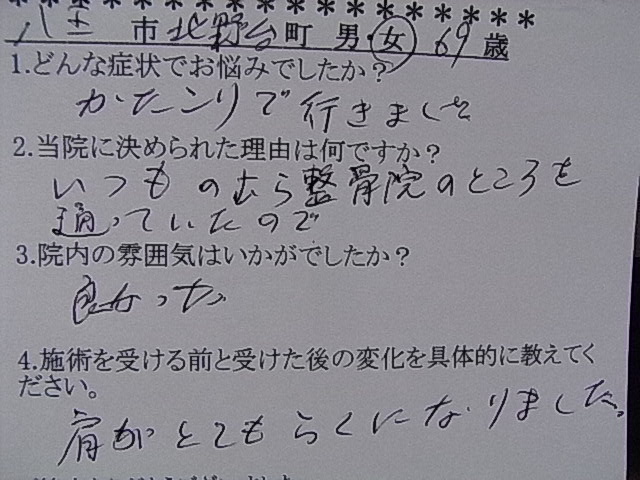 ＊＊＊＊＊＊＊＊＊＊＊＊＊＊＊＊＊＊＊
八王子市北野台町 男・女 69歳
1.どんな症状でお悩みでしたか？
かたコリで行きました
2.当院に決められた理由は何ですか？
いつものむら整骨院のところを
通っていたので
3.院内の雰囲気はいかがでしたか？
良かった
4.施術を受ける前と受けた後の変化を具体的に教えてく
ださい。
肩がとてもらくになりました。